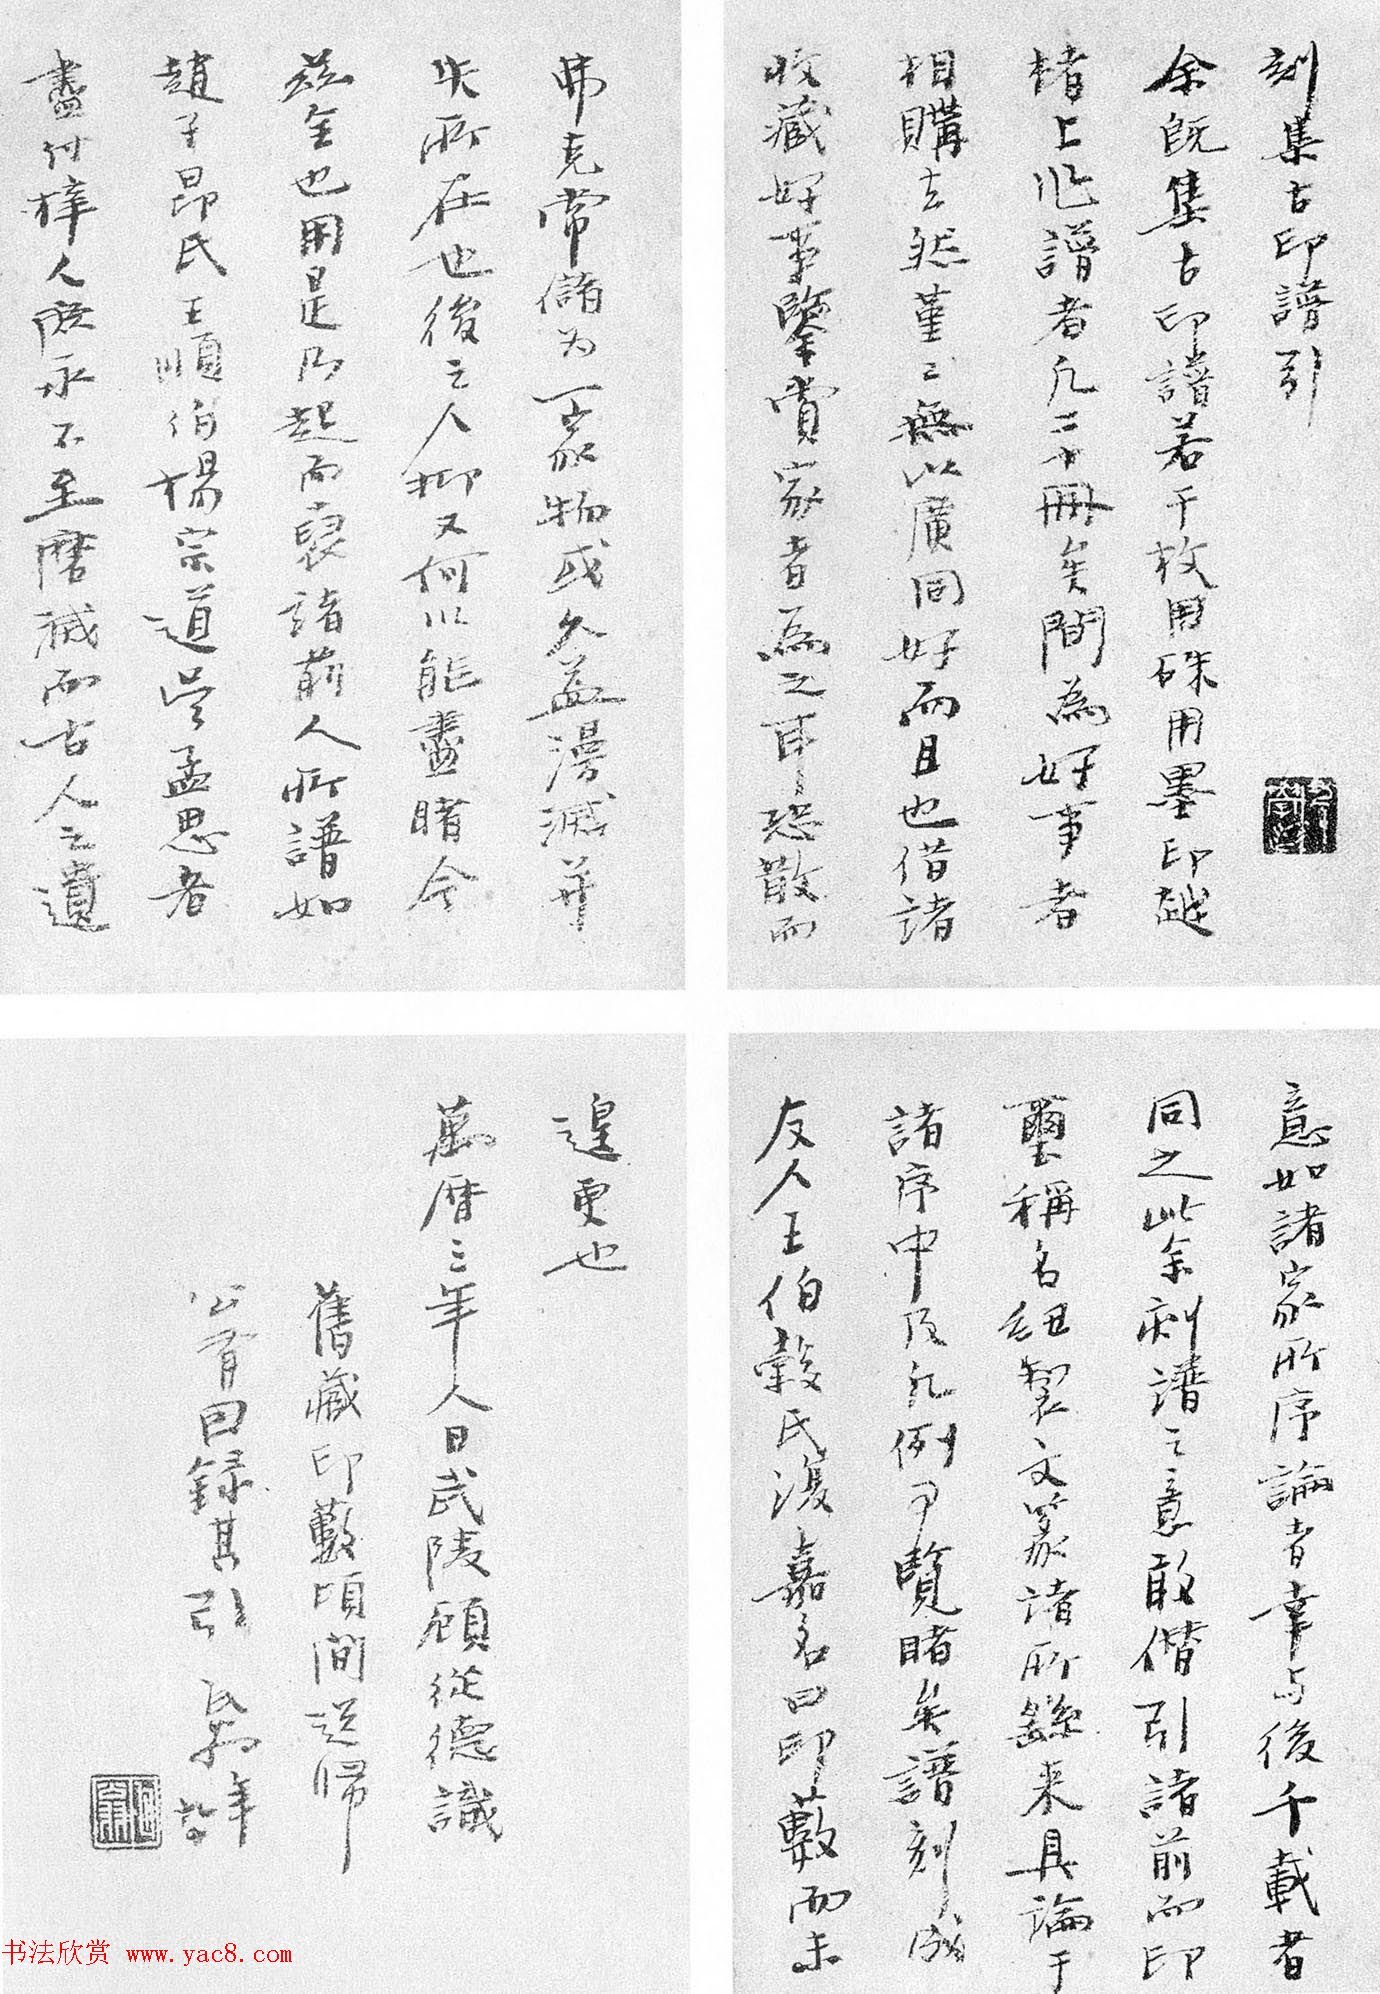 刻集古印譜引
余既集古印譜若干枚用硃用墨印越
楮上作譜者凡二十冊矣間為好事者
相購去然堇〻無以廣同好而且也借諸
收藏好事鑒賞家者為之耳恐散而
弗克常儲为一家物或久益漫滅并
失所在也後之人抑又何以能盡睹今
茲全也用是乃起而裒諸前人所譜如
趙子昂氏王順伯楊宗道吳孟思者
盡付梓人庶永不至磨滅而古人之遺
意如諸家所序論者幸与後千載者
同之此余刻譜之意敢僭引諸前而印
璽稱名紐製文篆諸所繇来具論于
諸序中及凡例可覽睹矣譜刻成
友人王伯穀氏復嘉名曰印藪而未
遑更也
萬曆三年人日武陵顧從德識
舊藏印藪頃間送歸
公肴因錄其引
年
书法欣赏 www.yac8.com